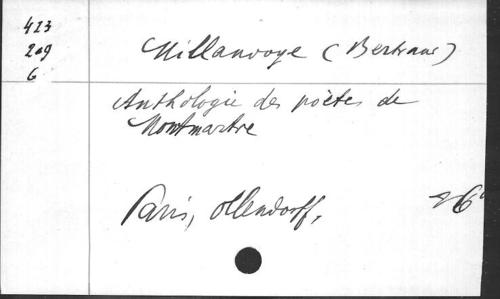 423
209
6
Millanvoye (Bertrand)
Anthologie des poètes de
Montmartre
Paris, Ollendorff,